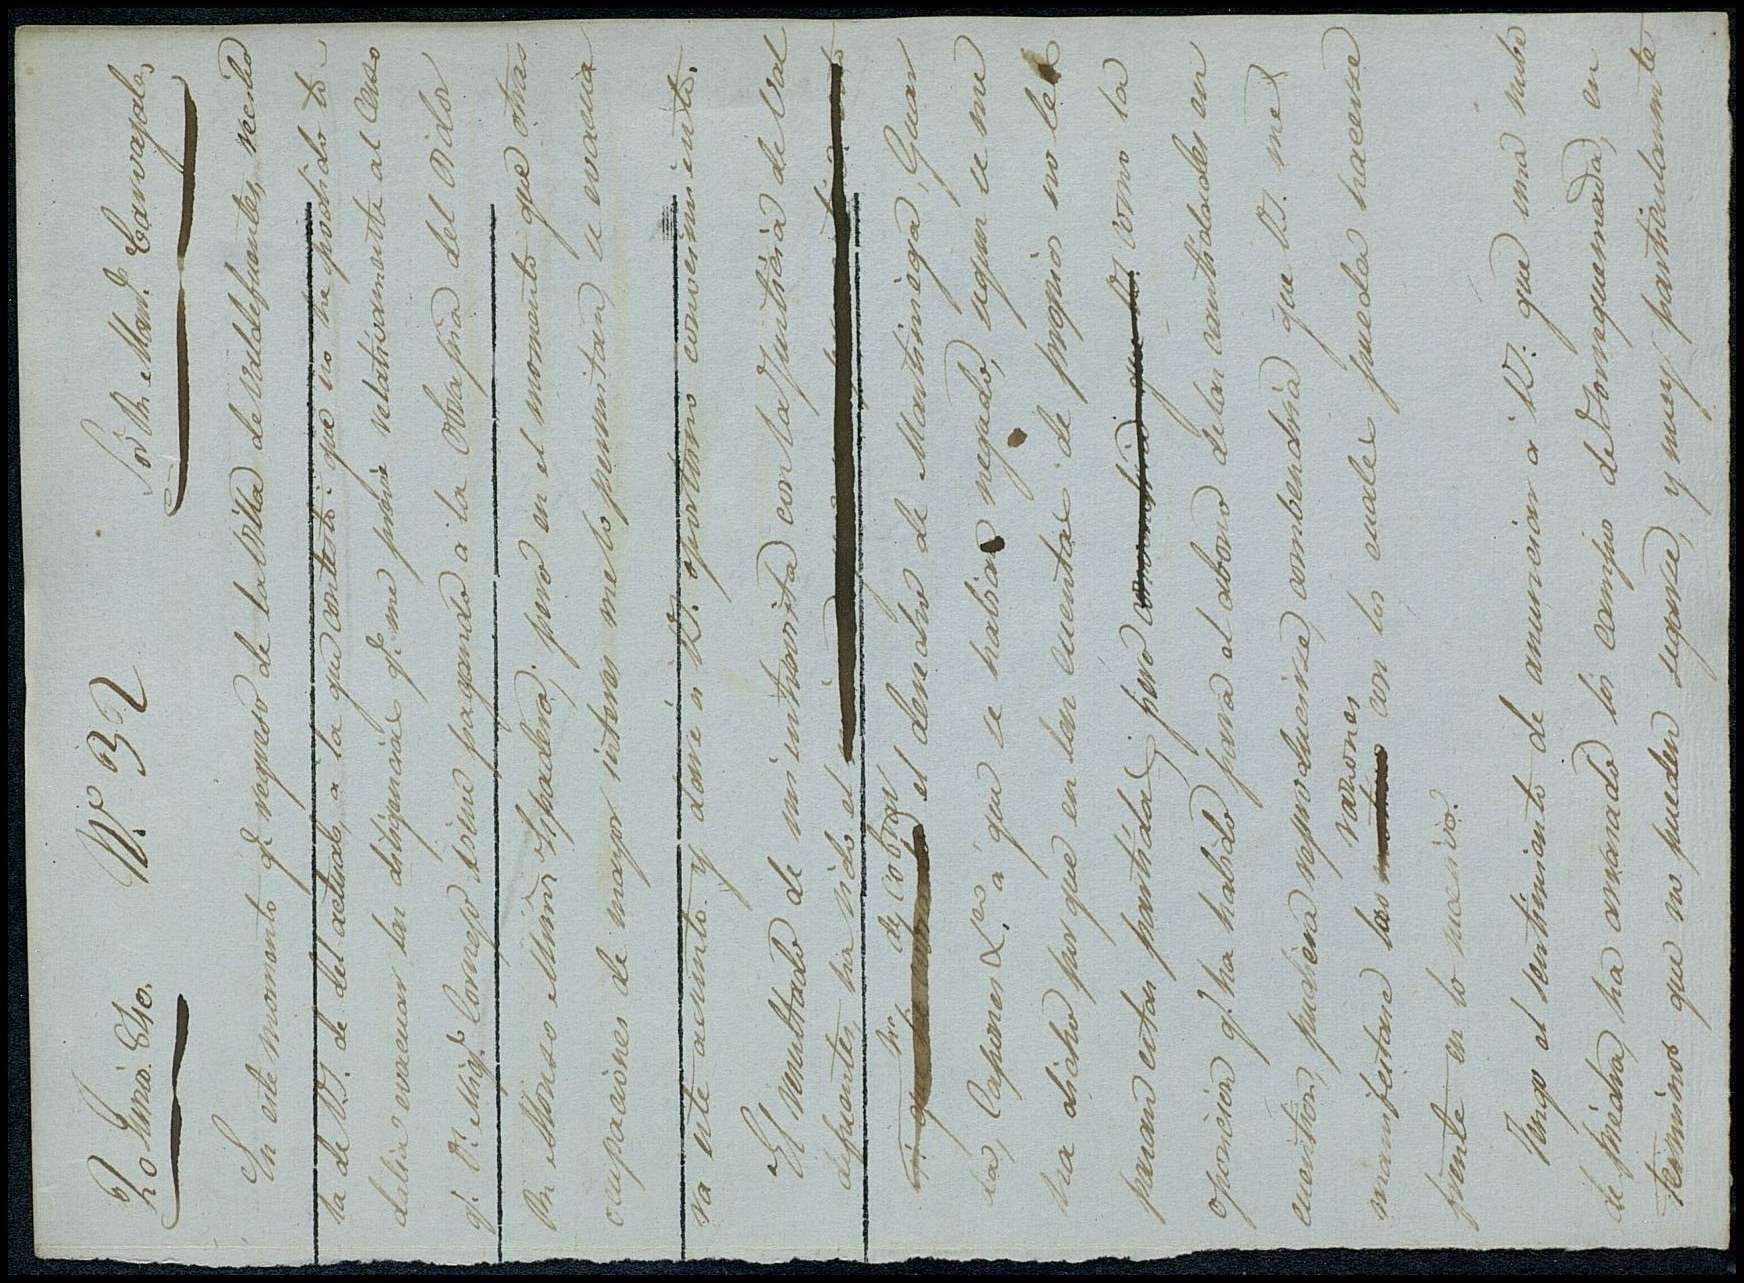 Nº 32
Sor Dn Man.l Carvajales
En este momento q.e regreso de la Villa de Valdefuentes, recibo
la de V. de del actual, a la que contesto: que no he podido to
davia evacuar las diligencias q.e me previene relativamente al Censo
q.e Dn Mig.l Cornejo sigue pagando a la Obra pia del Oidor
Dn Alonso Muñoz pero en el momento que otras
ocupaciones de mayor interes me lo permitan, se evacua
ra este asunto y dare a V. oportuno conocimiento.
El resultado de mi entrevista con la Justicia de Val
defuentes, ha sido el
de cobrar el derecho de Martiniega, Guar
da, Capones &.ª a que se habian negado, segun se me
ha dicho porque en las cuentas de propios no les
pasan estas partidas; pero como la
oposicion q.e ha habido para el abono de las cantidades en
cuestion, pudiera reproducirse, combendria que V. me
manifestase las razones con las cuales pueda hacerse
frente en lo sucesivo.
Tengo el sentimiento de anunciar a V. que una nube
de piedra, ha arruinado los campos de Torrequemada, en
terminos que no pueden segarse, y muy particularmente